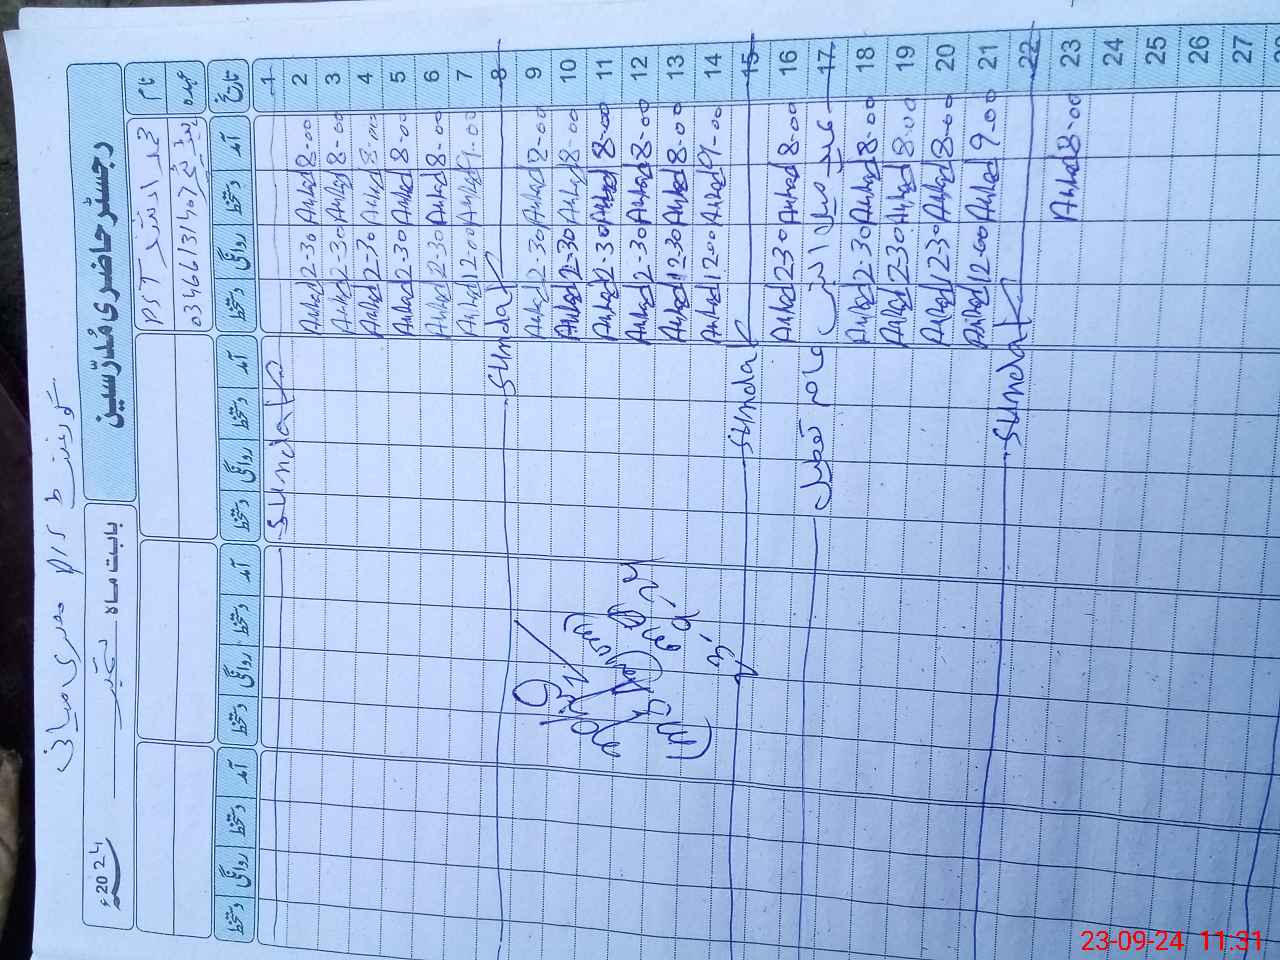 رجسٹر حاضری مُدرّسین
بابت ماہ ستمبر 2024ء
نام
عہدہ
محمد ارشد PST
03466131407
تاریخ آمد دستخط روانگی دستخط آمد دستخط روانگی دستخط آمد دستخط روانگی دستخط آمد دستخط روانگی دستخط
1 Sunday
2 8-00 Arshad 2-30 Arshad
3 8-00 Arshad 2-30 Arshad
4 8-00 Arshad 2-30 Arshad
5 8-00 Arshad 2-30 Arshad
6 8-00 Arshad 12-30 Arshad
7 9-00 Arshad 12-00 Arshad
8 Sunday
9 8-00 Arshad 2-30 Arshad
10 8-00 Arshad 2-30 Arshad
11 8-00 Arshad 2-30 Arshad
12 8-00 Arshad 2-30 Arshad
13 8-00 Arshad 12-30 Arshad
14 9-00 Arshad 12-00 Arshad
15 Sunday
16 8-00 Arshad 2-30 Arshad
17 عید میلاد النبی عام تعطیل
18 8-00 Arshad 2-30 Arshad
19 8-00 Arshad 2-30 Arshad
20 8-00 Arshad 12-30 Arshad
21 9-00 Arshad 12-00 Arshad
22 Sunday
23 8-00 Arshad
24
25
26
27
23-09-24 11:31